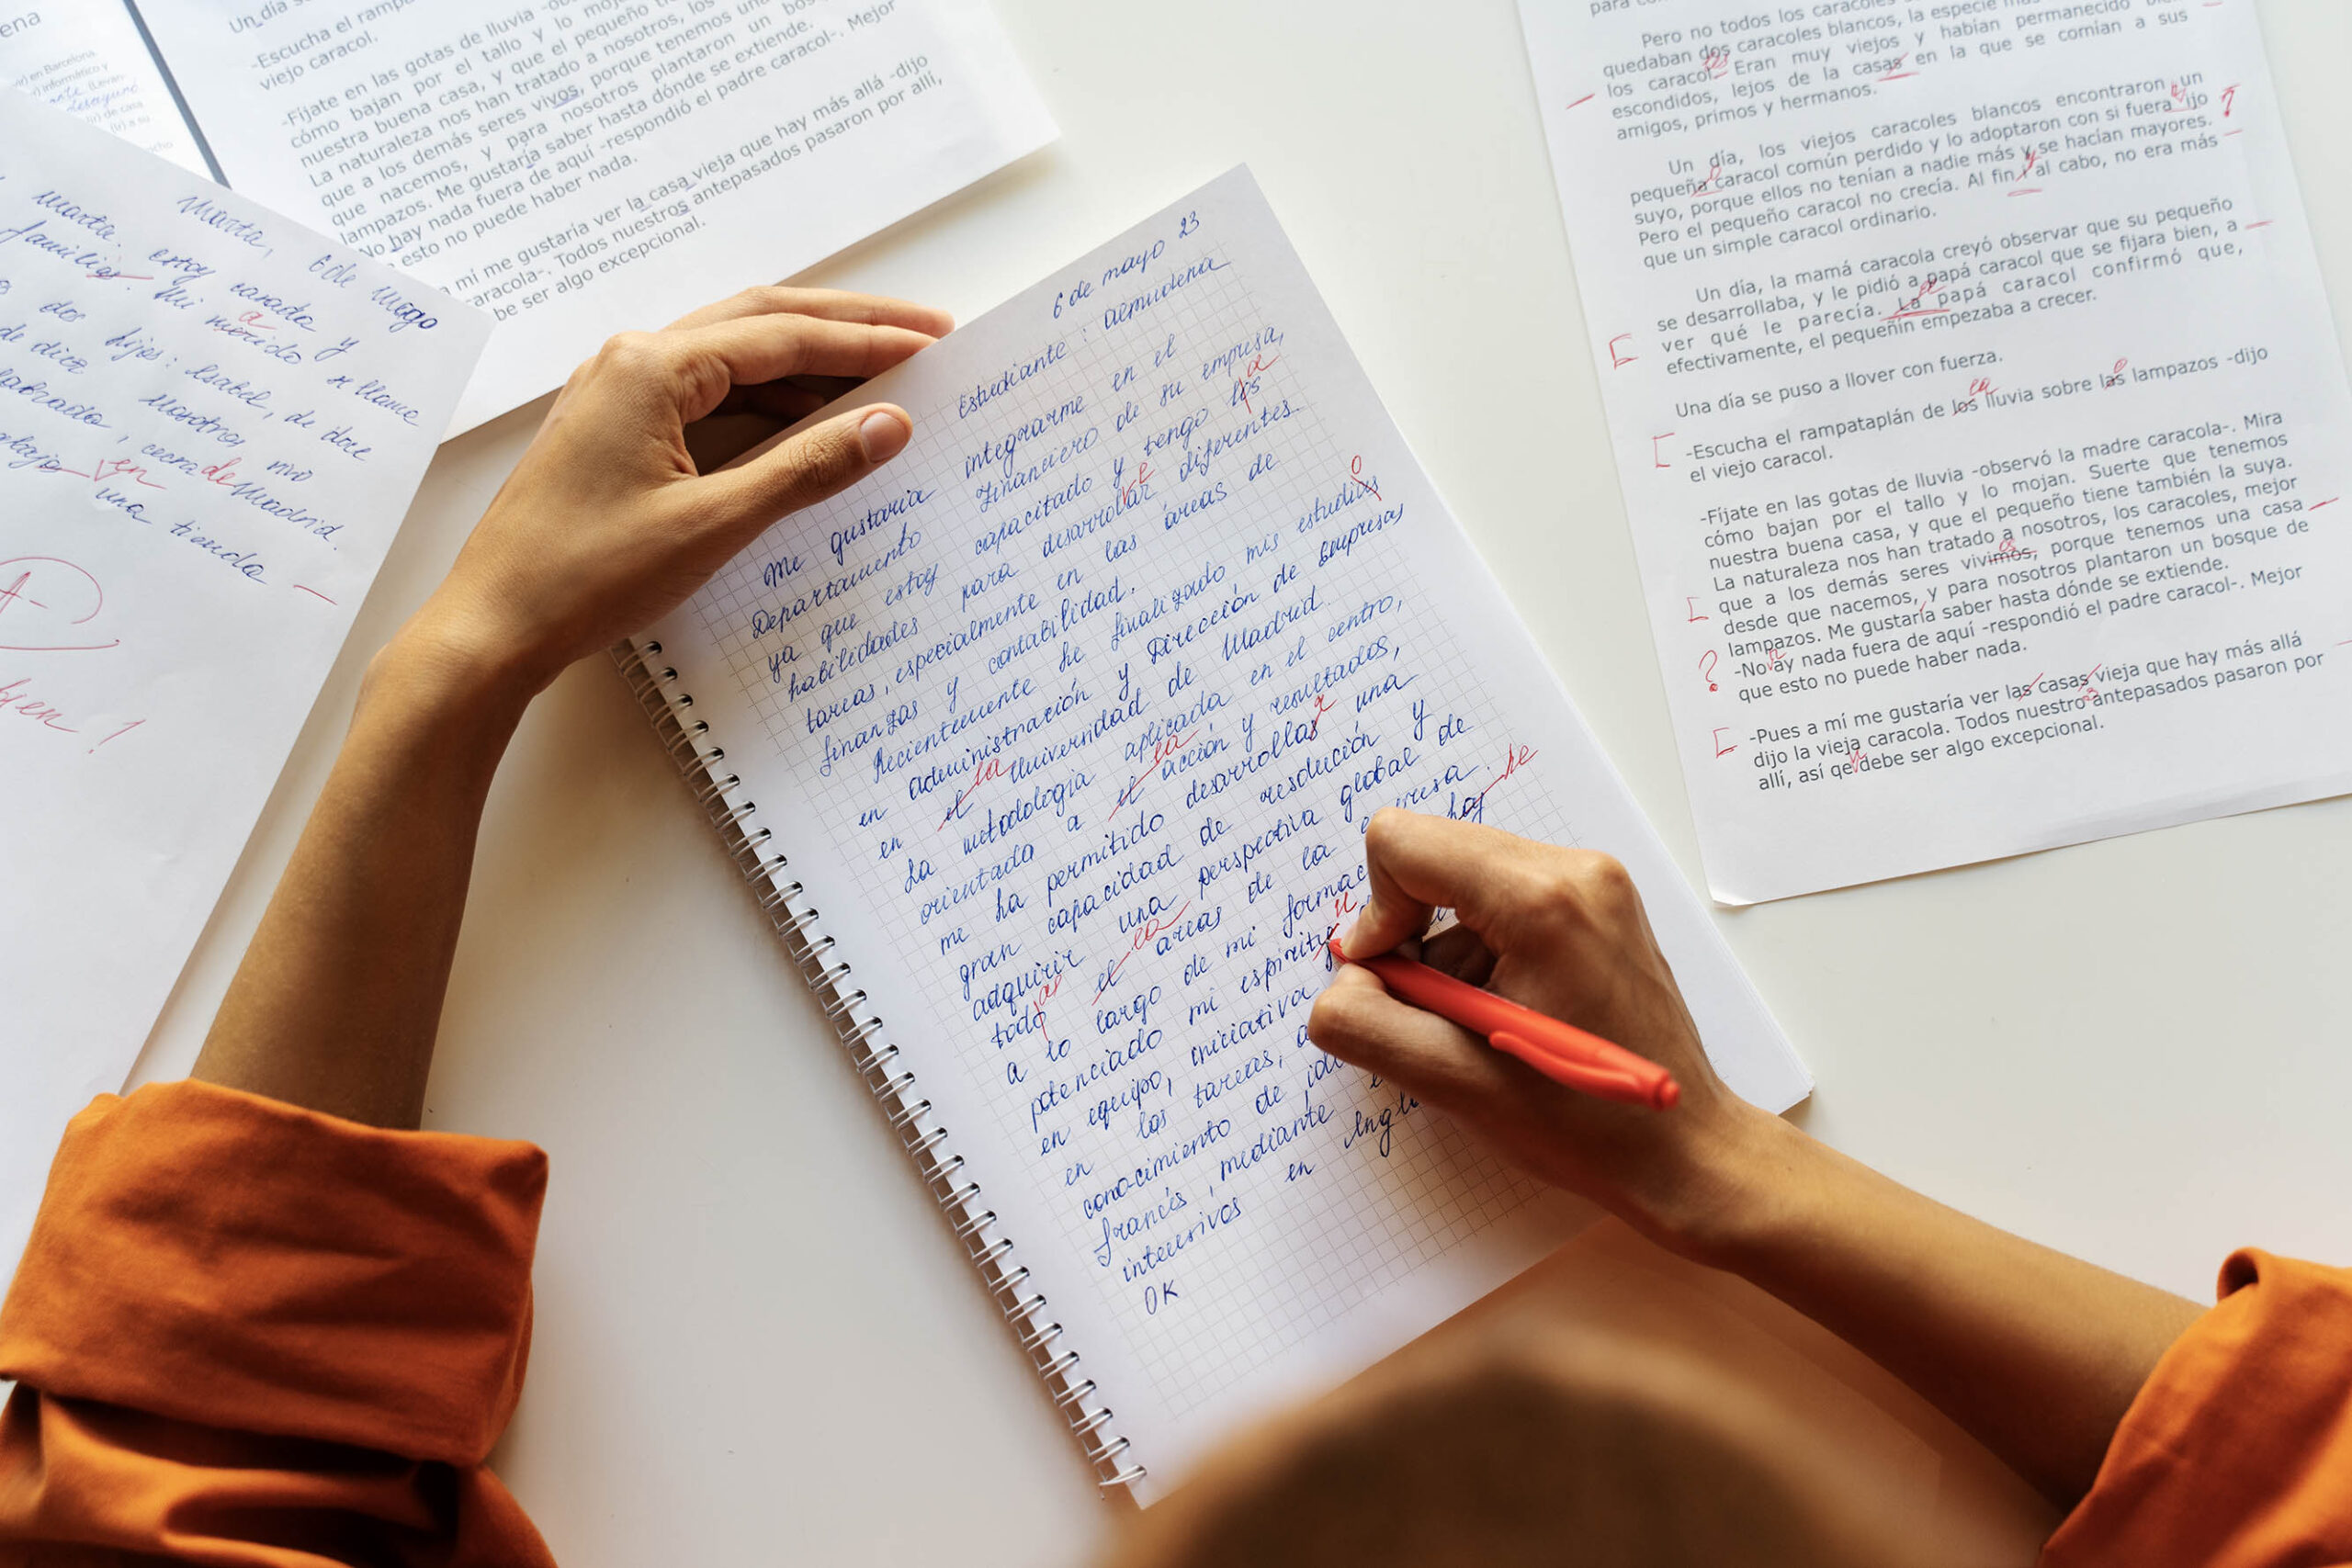 ena
en Barcelona
informático y
desayuno
de casa
a su
Un día
-Escucha el rampa
viejo caracol.
-Fíjate en las gotas de lluvia
cómo bajan por el tallo y lo
nuestra buena casa, y que el pequeño
La naturaleza nos han tratado a nosotros, los
que a los demás seres vivos, porque tenemos una
que nacemos, y para nosotros plantaron un
lampazos. Me gustaría saber hasta dónde se extiende.
No hay nada fuera de aquí -respondió el padre caracol-. Mejor
esto no puede haber nada.
a mí me gustaría ver la casa vieja que hay más allá -dijo
caracola-. Todos nuestros antepasados pasaron por allí,
be ser algo excepcional.
Marta, 6 de mayo
Marta. estoy casada y
familiar. Mi marido se llama
dos hijos: Isabel, de doce
de diez
Nosotros vivo
cerca de Madrid.
en una tienda
A-
bien!
6 de mayo 23
Estudiante: Almudena
Me gustaria integrarme en el
Departamento Financiero de su empresa,
ya que estoy capacitado y tengo los a
habilidades para desarrollar diferentes
tareas, especialmente en las áreas de
finanzas y contabilidad.
Recientemente he finalizado mis estudias o
en administración y Dirección de Empresas
en el la Universidad de Madrid.
La metodologia aplicada en el centro,
orientada a el la acción y resultados,
me ha permitido desarrollas r una
gran capacidad de resolución y
adquirir una perspectiva global de
todo as el la areas de la empresa.
a lo largo de mi formac haj he
potenciado mi espiritu
en equipo, iniciativa
en las tareas, a
conocimiento de idi
francés, mediante
intensivos en Ingl
OK
para
Pero no todos los caracoles
quedaban dos caracoles blancos, la especie más
los caracol. Eran muy viejos y habían permanecido
escondidos, lejos de la casas en la que se comían a sus
amigos, primos y hermanos.
Un día, los viejos caracoles blancos encontraron un
pequeña caracol común perdido y lo adoptaron con si fuera ijo ?
suyo, porque ellos no tenían a nadie más y se hacían mayores.
Pero el pequeño caracol no crecía. Al fin y al cabo, no era más
que un simple caracol ordinario.
Un día, la mamá caracola creyó observar que su pequeño
se desarrollaba, y le pidió a papá caracol que se fijara bien, a
ver qué le parecía. La papá caracol confirmó que,
efectivamente, el pequeñín empezaba a crecer.
Una día se puso a llover con fuerza.
-Escucha el rampataplán de los la lluvia sobre las o lampazos -dijo
el viejo caracol.
-Fíjate en las gotas de lluvia -observó la madre caracola-. Mira
cómo bajan por el tallo y lo mojan. Suerte que tenemos
nuestra buena casa, y que el pequeño tiene también la suya.
La naturaleza nos han tratado a nosotros, los caracoles, mejor
que a los demás seres vivimos, os porque tenemos una casa
desde que nacemos, y para nosotros plantaron un bosque de
lampazos. Me gustaría saber hasta dónde se extiende.
? -No ay nada fuera de aquí -respondió el padre caracol-. Mejor
que esto no puede haber nada.
-Pues a mí me gustaría ver las casas vieja que hay más allá
dijo la vieja caracola. Todos nuestro s antepasados pasaron por
allí, así qe debe ser algo excepcional.